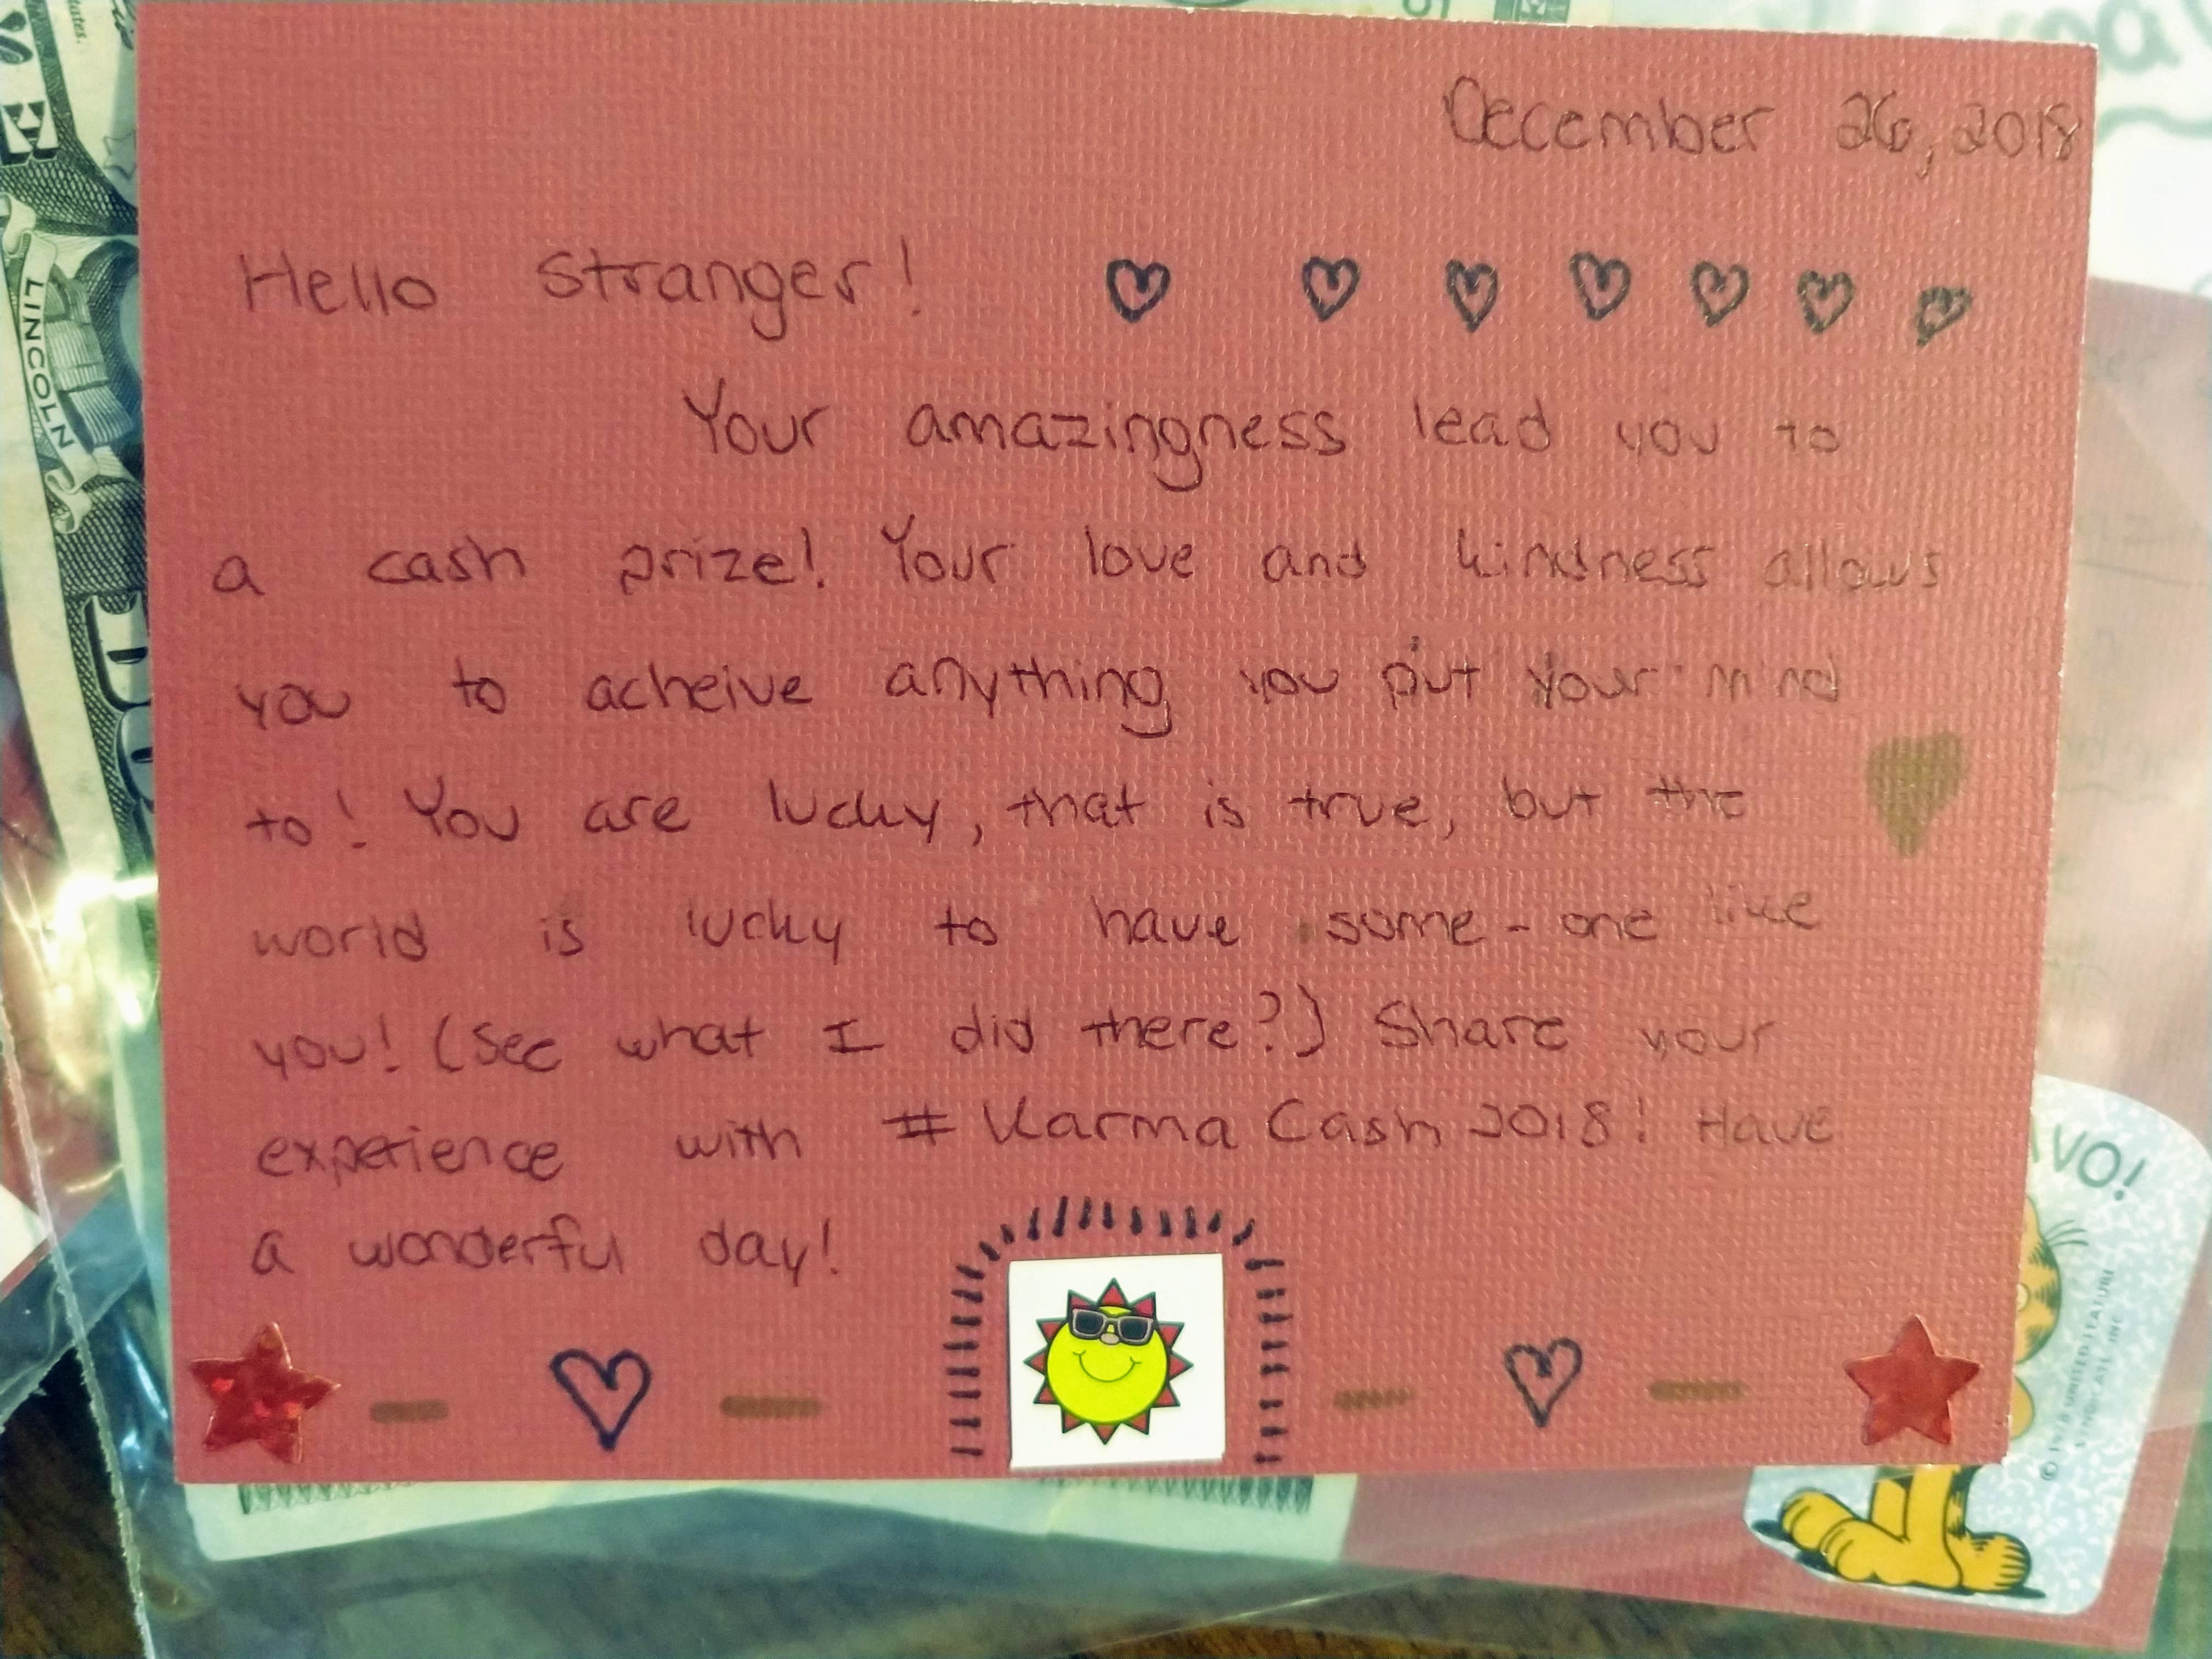 December 26, 2018
Hello stranger!
Your amazingness lead you to
a cash prize! Your love and kindness allows
you to acheive anything you put your mind
to! You are lucky, that is true, but the
world is lucky to have some-one like
you! (See what I did there?) Share your
experience with #KarmaCash2018! Have
a wonderful day!
LINCOLN
VO!
© 1978 UNITED FEATURE
SYNDICATE, INC.